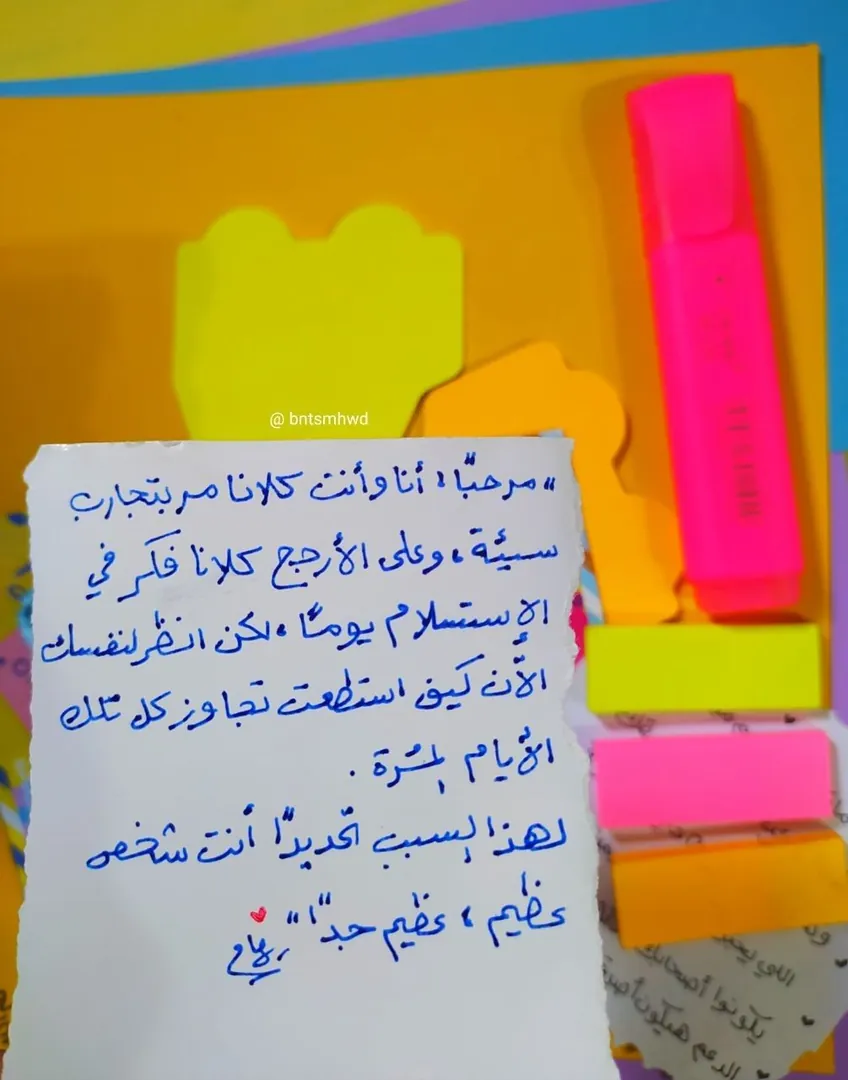 @ bntsmhwd
"مرحبًا، أنا وأنت كلانا مر بتجارب
سيئة، وعلى الأرجح كلانا فكر في
الإستسلام يومًا، لكن انظر لنفسك
الآن كيف استطعت تجاوز كل تلك
الأيام المُرة.
لهذا السبب تحديدًا أنت شخص
عظيم، عظيم جدًا"
اللي
يكونوا أصحابك
الدعم هيكون